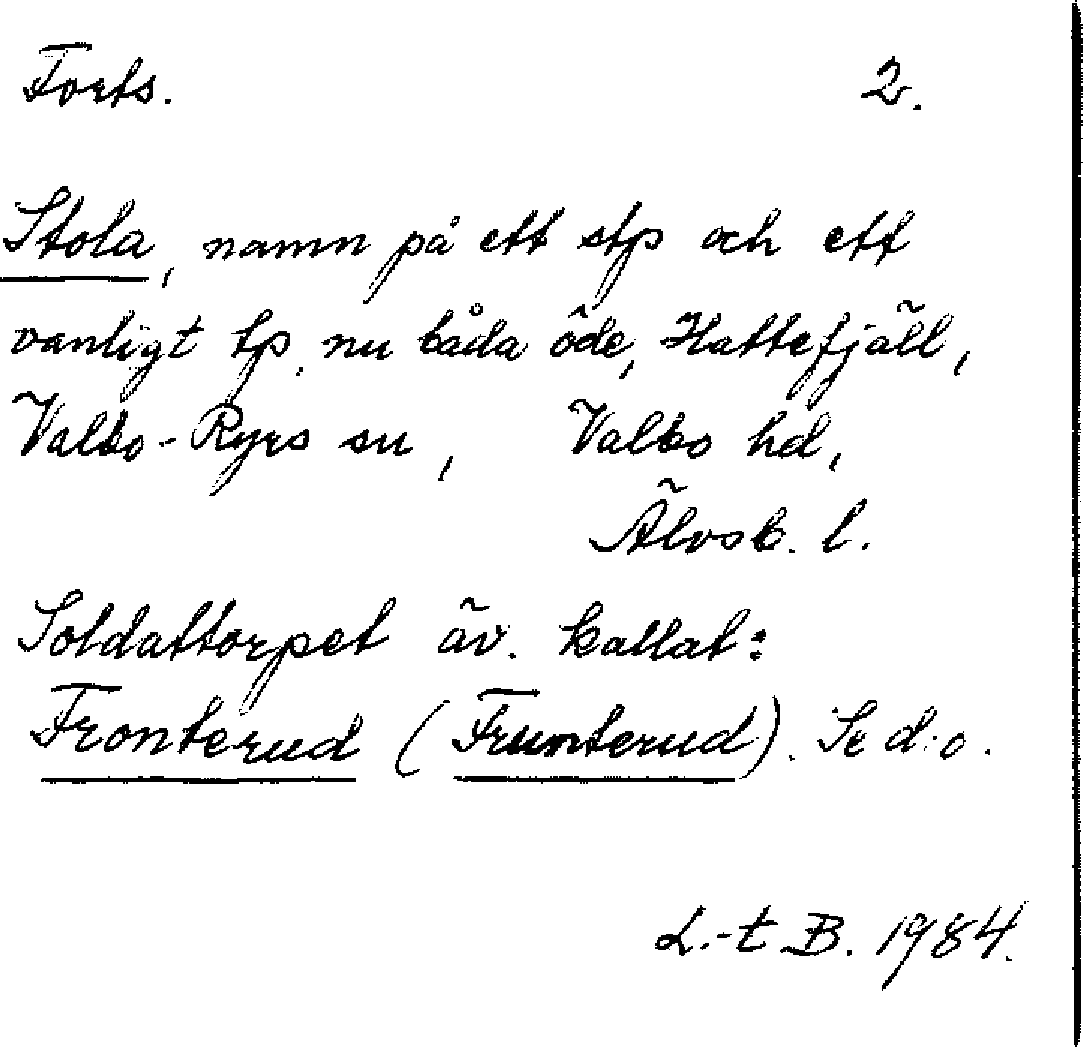 Forts. 2.
Stola, namn på ett stp och ett
vanligt tp, nu båda öde, Hattefjäll,
Valbo-Ryrs sn, Valbo hd,
Älvsb. l.
Soldattorpet äv. kallat:
Fronterud (Frunterud). Se d:o.
L.-t B. 1984.